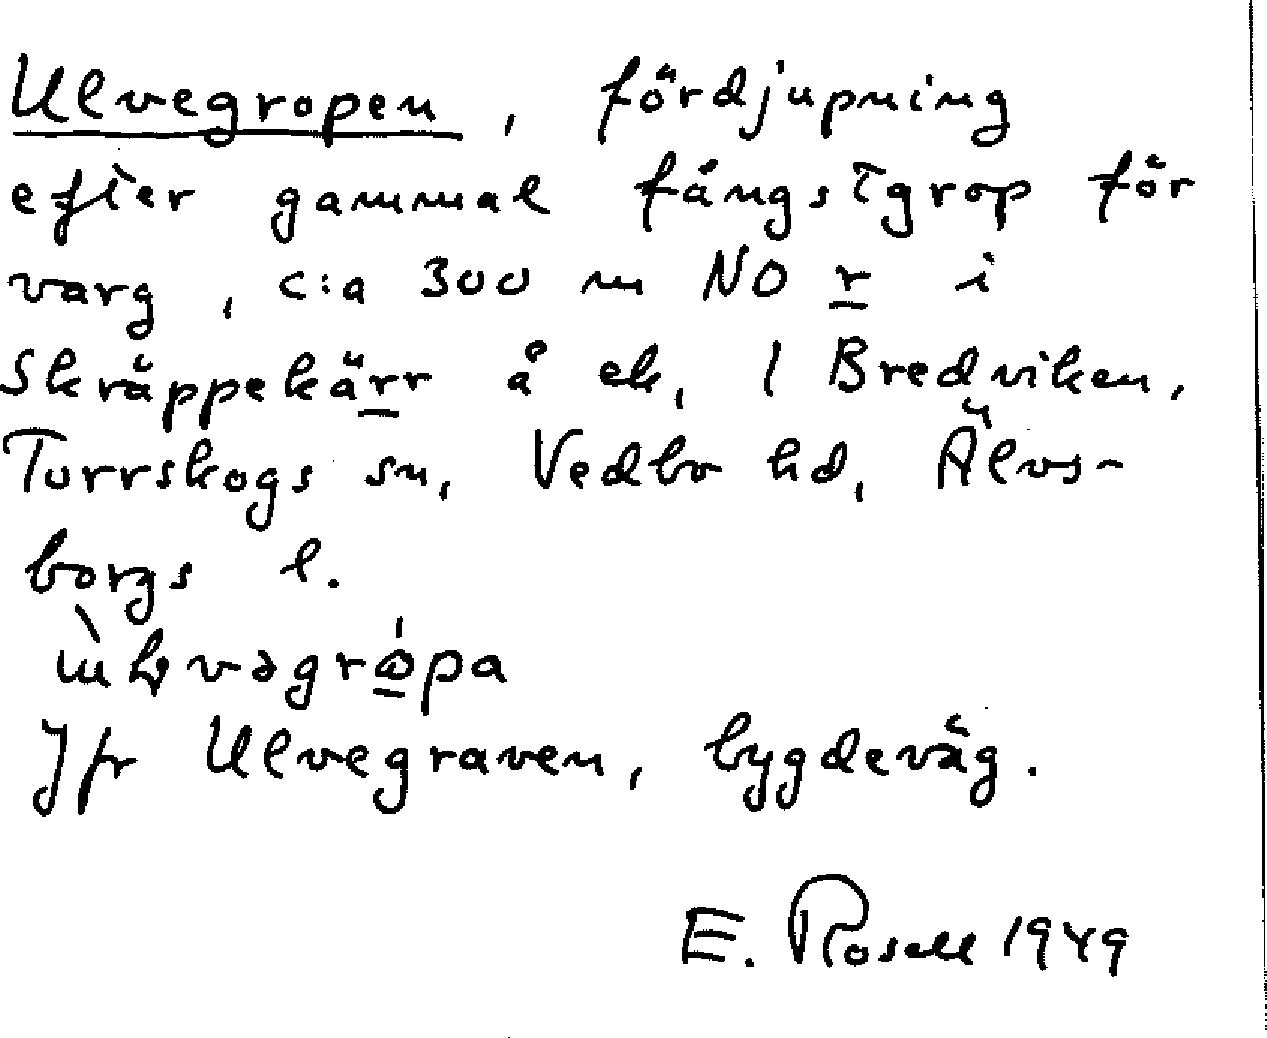 Ulvegropen, fördjupning
efter gammal fångstgrop för
varg, c:a 300 m NO r i
Skräppekärr å ek, 1 Bredviken,
Torrskogs sn, Vedbo hd, Älvs-
borgs l.
Jfr Ulvegraven, bygdeväg.
E. Rosell 1949